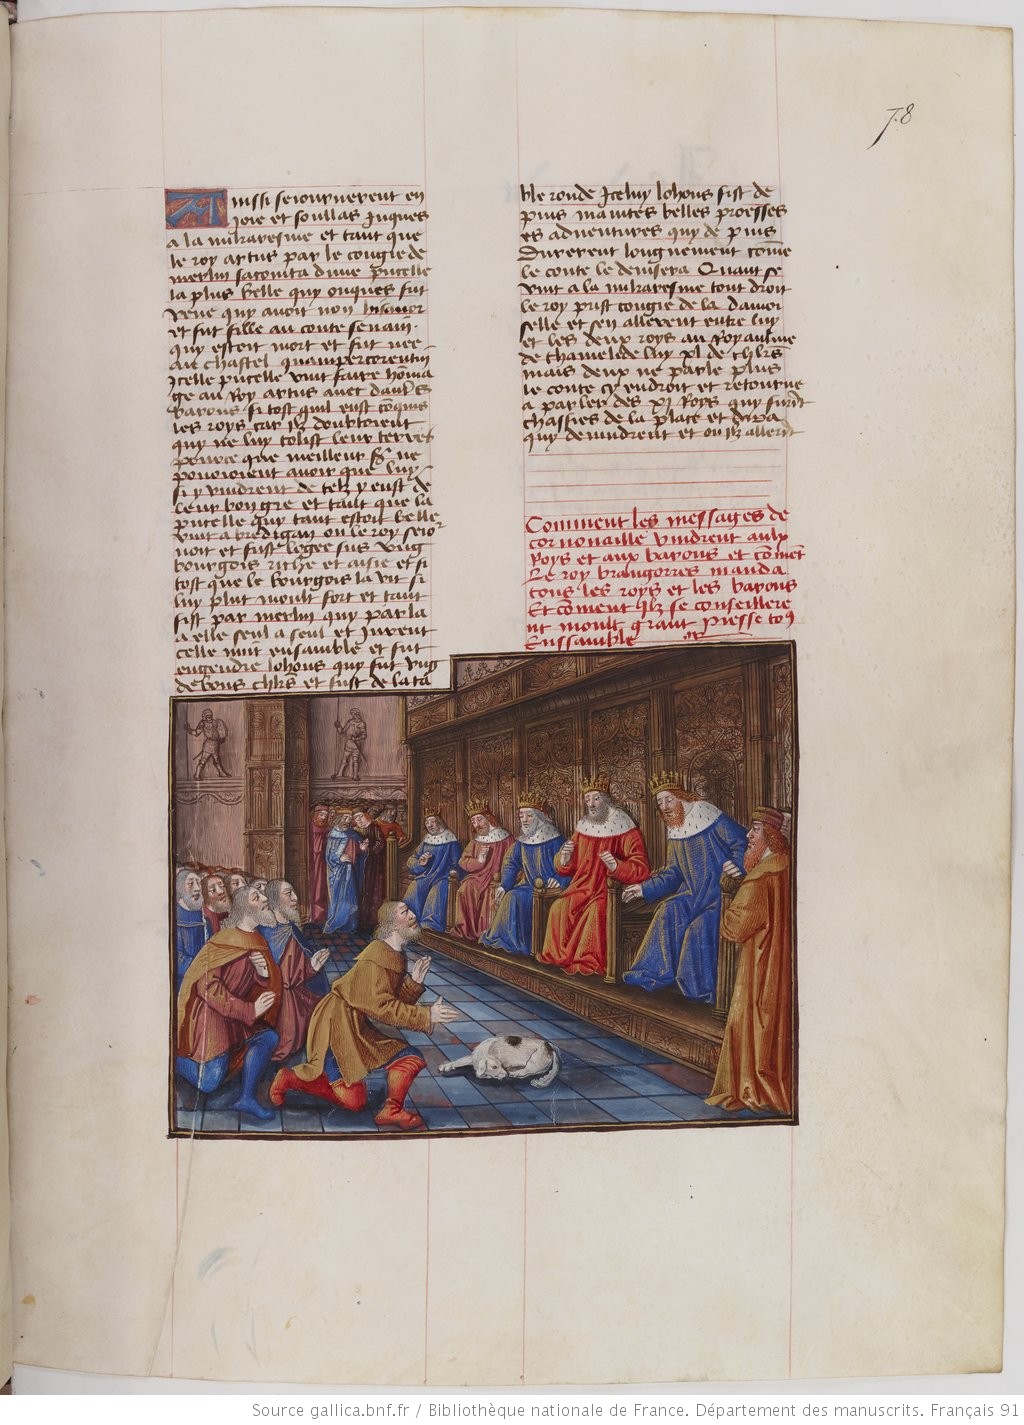 78
Ainssi seiournerent en
joie et soullas jusques
a la mikaresme et tant que
le roy artus par le congie de
merlin sacointa dune pucelle
la plus belle quy onques fut
veue quy avoit non lisanor
et fut fille au conte senain.
quy estoit mort et fut nee
au chastel quampercorentin
Icelle pucelle vint faire homa
ge au Roy artus avec daultres
barons si tost quil eust conquis
les roys car ilz doubtoient
quy ne luy tolist leur terres
pource que meilleur ne
pouoioient avoir que luy
si y vindrent de telz y eust de
leur bon gre et tant que la
pucelle quy tant estoit belle
vint a bredigan ou le roy seior
noit et fust legee sus ung
bourgois riche et aisie et si
tost que le bourgois la vit si
luy plut moult fort et tant
fist par merlin quy parla
a elle seul a seul et Jurent
celle nuit ensamble et fut
engendre lohous quy fut ung
de bons chlrs et fust de la ta
ble ronde Iceluy lohous fist de
puis maintes belles proesses
es adventures quy de puis
Durerent longuement come
le conte le devisera Quant se
vint a la mikaresme tout droit
le roy prist congie de la damoi
selle et sen allerent entre luy
et les deux roys au Royaulme
de thamelide luy pl de chlrs
mais deux ne parle plus
le conte cy endroit et retourne
a parler des xj Roys quy furent
chassies de la place et dira
quy devindrent et ou ilz allerent
Comment les messages de
cornouaille vindrent aulx
Roys et aux barons et coment
Le roy brangorres manda
tous les roys et les barons
Et coment ilz se conseillere
nt moult grant piesse tous
Ensamble
Source gallica.bnf.fr / Bibliothèque nationale de France. Département des manuscrits. Français 91